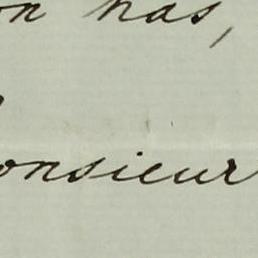 on has,
onsieur